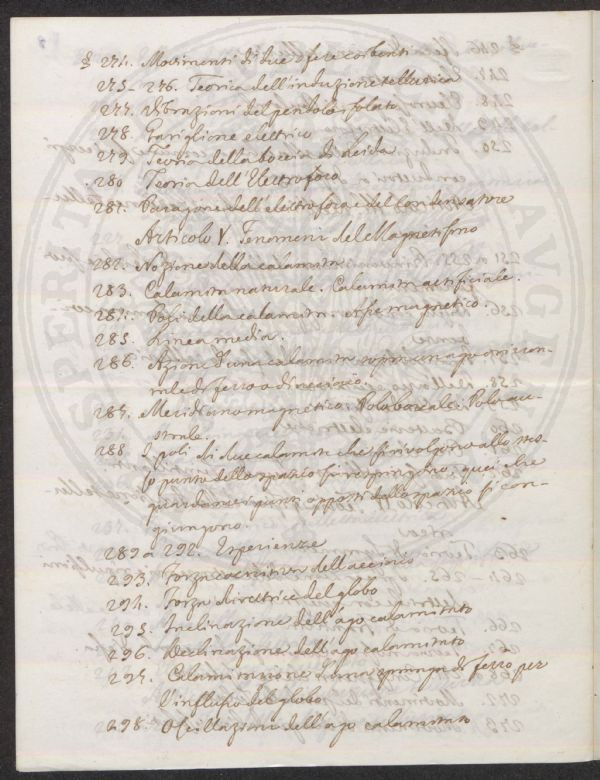 § 274. Movimenti di due sfere coibenti
275 - 276. Teorica dell'induzione elettrica
277. Vibrazioni del pendolo isolato
278. Cariglione elettrico
279. Teoria della boccia di Leida
280 Teoria dell'Elettroforo
281. Paragone dell'elettroforo e del Condensatore
Articolo V. Fenomeni del Magnetismo
282. Nozione della calamita
283. Calamita naturale. Calamita artificiale.
284. Poli della calamita. Asse magnetico.
285. Linea media.
286. Azione d'una calamita sopra un ago orizzon-
tale di ferro o di acciaio.
287. Meridiano magnetico. Polo boreale. Polo au-
strale.
288. I poli di due calamite che si rivolgono allo stes-
so punto dello spazio si respingono; quei che
guardano i punti opposti dello spazio si con-
giungono.
289 a 292. Esperienze
293. Forza coercitiva dell'acciaio
294. Forza direttrice del globo
295. Inclinazione dell'ago calamitato
296. Declinazione dell'ago calamitato
297. Calamitazione d'una spranga di ferro per
l'influsso del globo
298. Oscillazioni dell'ago calamitato